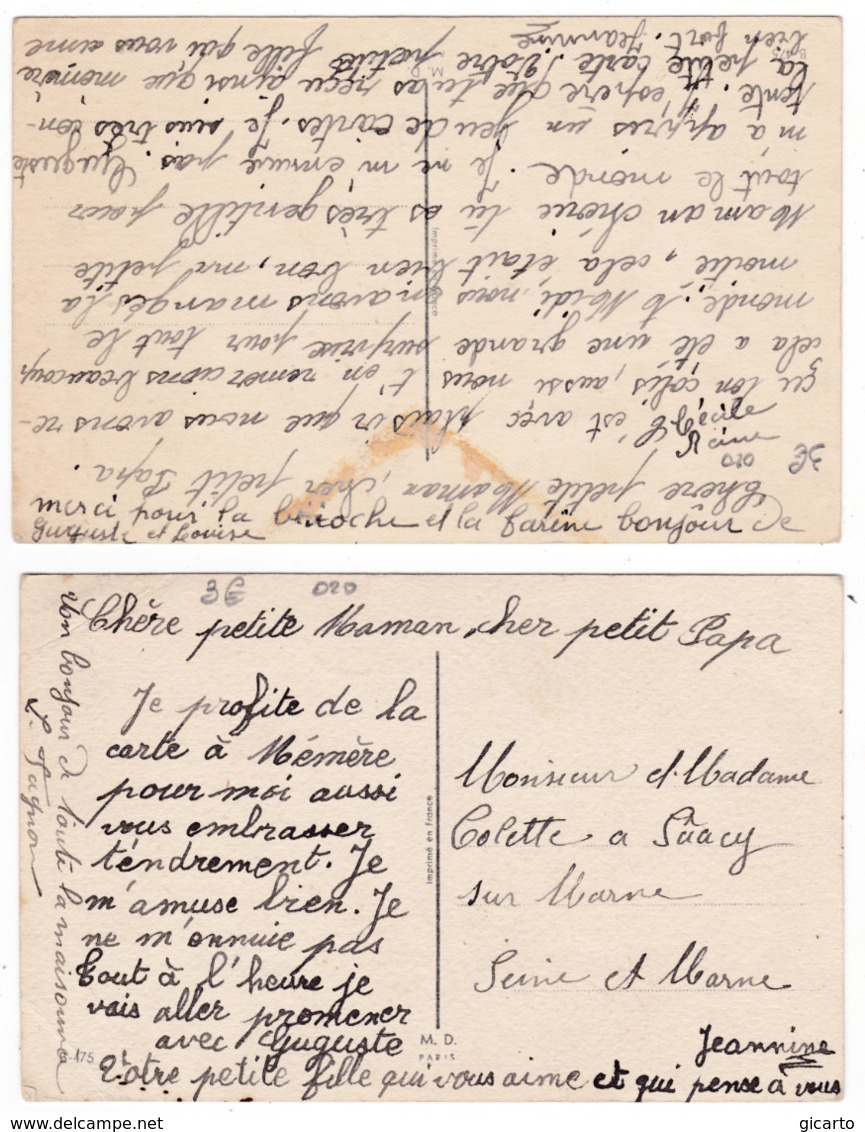 Chère petite Maman, cher petit Papa.
C'est avec plaisir que nous avons re-
çu ton colis, aussi nous t'en remercions beaucoup
cela a été une grande surprise pour tout le
monde; à Midi nous en avons mangés la
moitié, cela était bien bon, ma petite
Maman chérie tu es très gentille pour
tout le monde. Je ne m'ennuie pas. Guguste
m'a appres un jeu de cartes. Je suis très con-
tente. J'espère que tu as reçu ainsi que mémère
la petite carte. Votre petite fille qui vous aime
bien fort. Jeannine
Cécile
Reine
020
3€
merci pour la brioche et la farine bonjour de
Guguste et Louise
Imprimé en France
M. D.
3€ 020
Chère petite Maman, cher petit Papa
Je profite de la
carte à Mémère
pour moi aussi
vous embrasser
tendrement. Je
m'amuse bien. Je
ne m'ennuie pas
tout à l'heure je
vais aller promener
avec Guguste
Votre petite fille qui vous aime et qui pense à vous
Jeannine
Un bonjour de toute la maisonnée
Monsieur et Madame
Colette a Sâacy
sur Marne
Seine et Marne
Imprimé en France
M. D.
PARIS
175